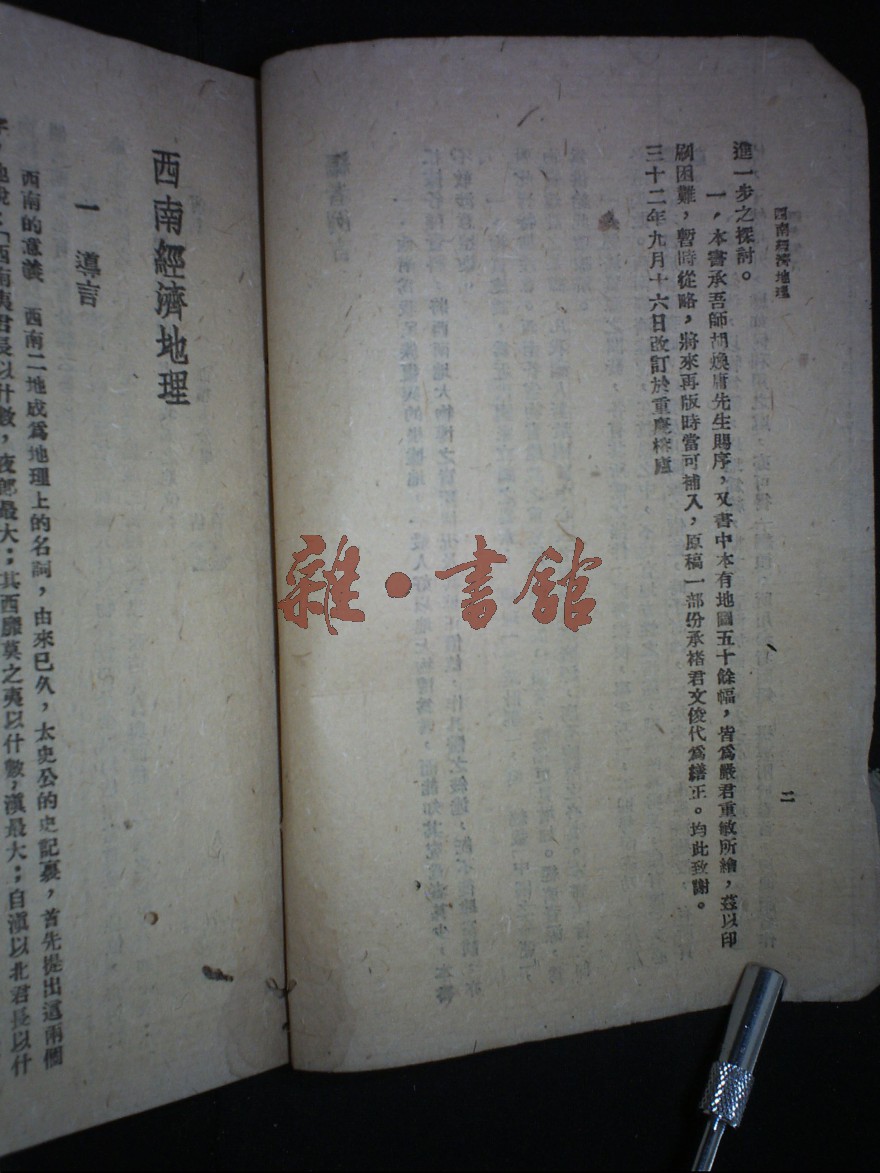 西南經濟地理
二
進一步之探討。
一，本書承吾師胡煥庸先生賜序，又書中本有地圖五十餘幅，皆爲嚴君重敏所繪，茲以印
刷困難，暫時從略，將來再版時當可補入，原稿一部份承褚君文俊代爲繕正。均此致謝。
三十二年九月十六日改訂於重慶
西南經濟地理
一 導言
西南的意義 西南二地成爲地理上的名詞，由來已久，太史公的史記裏，首先提出這兩個
字，他說：「西南夷君長以什數，夜郎最大；其西靡莫之夷以什數，滇最大；自滇以北君長以什
雜·書館